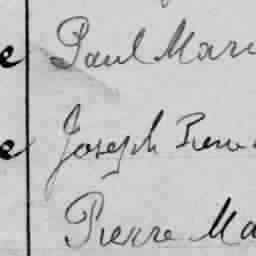 e Paul Mari
e Joseph Rene
Pierre Ma